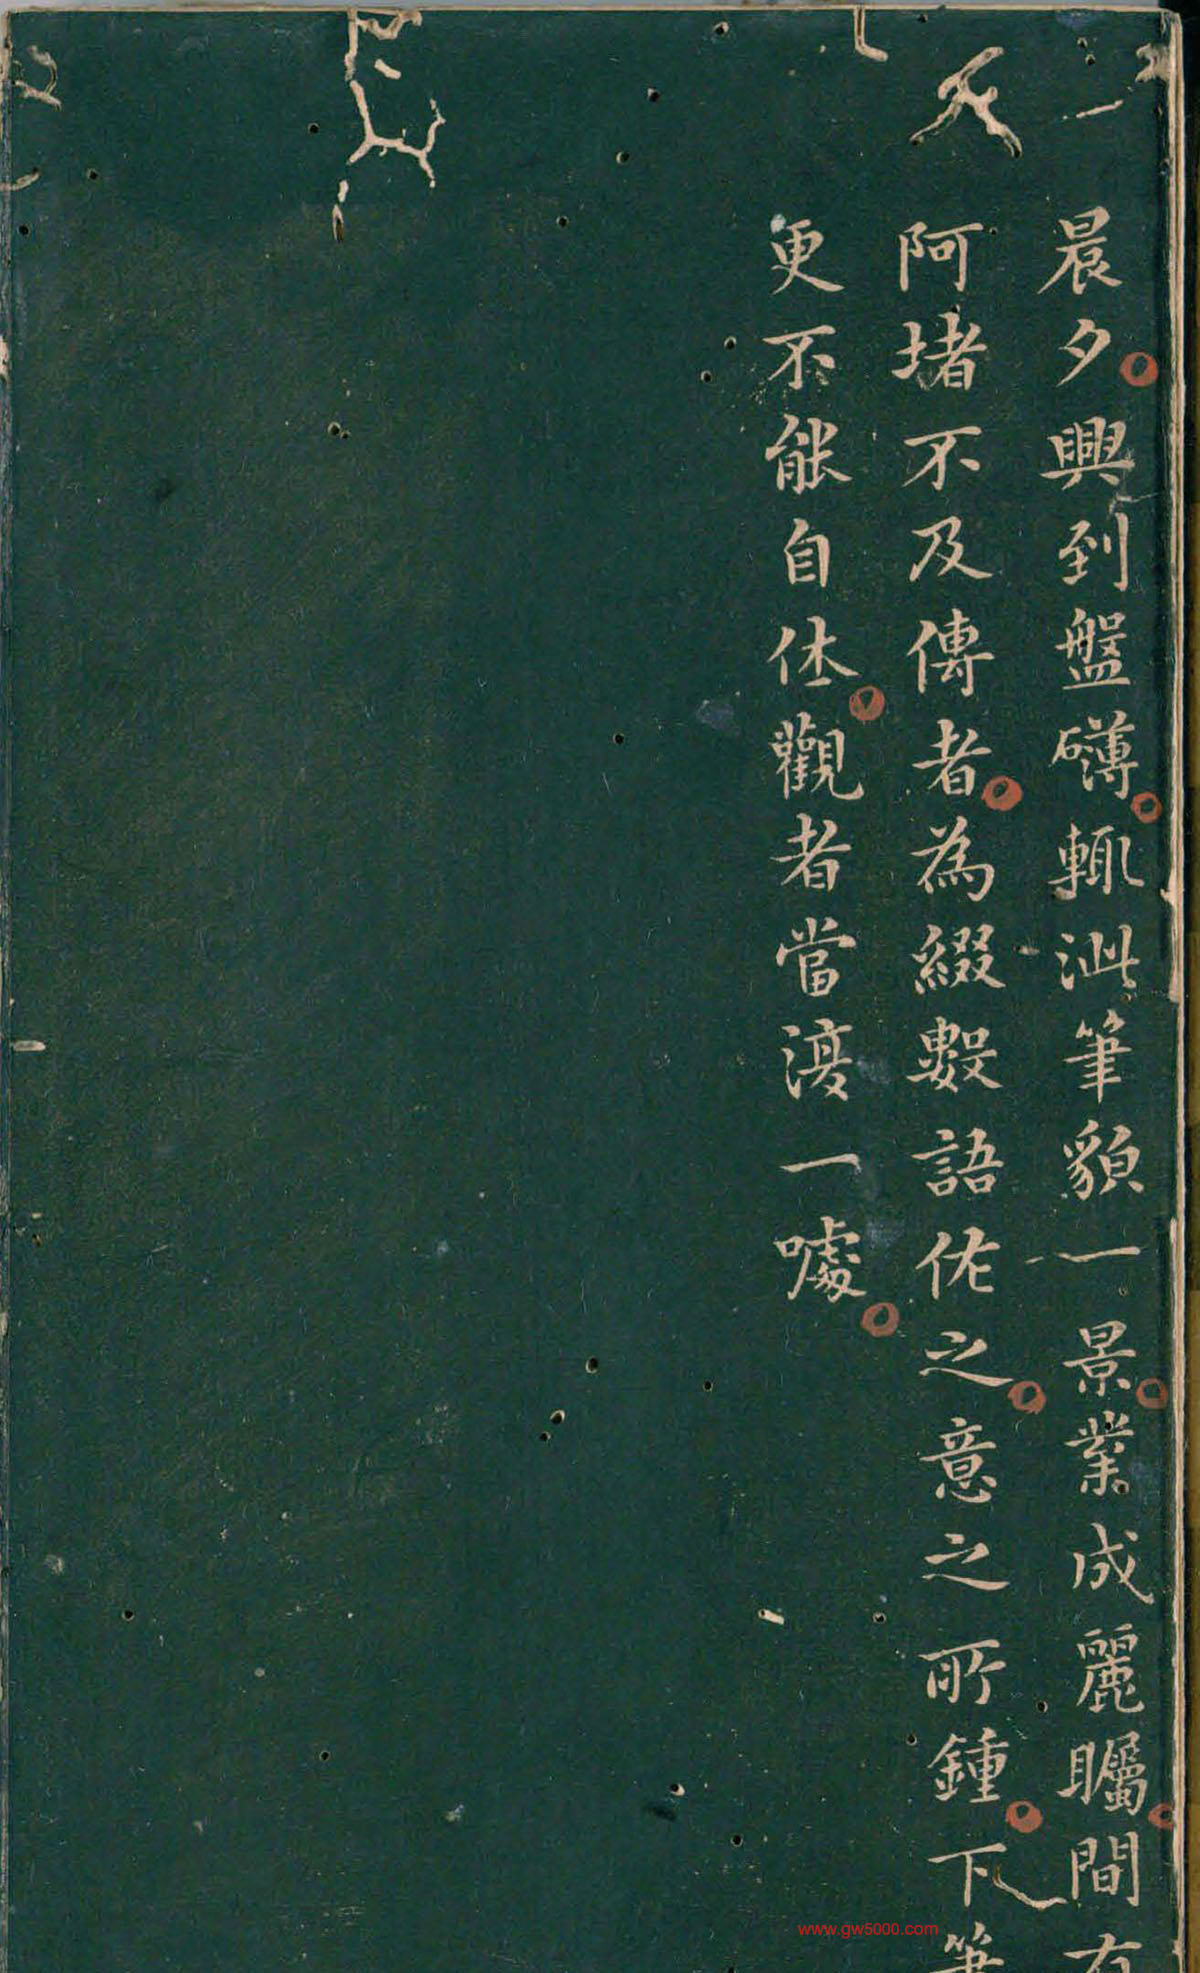 晨夕興到盤礴輒泚筆貌一景業成麗矚間有
阿堵不及傳者為綴數語佐之意之所鍾下筆
更不能自休觀者當復一噱
www.gw5000.com